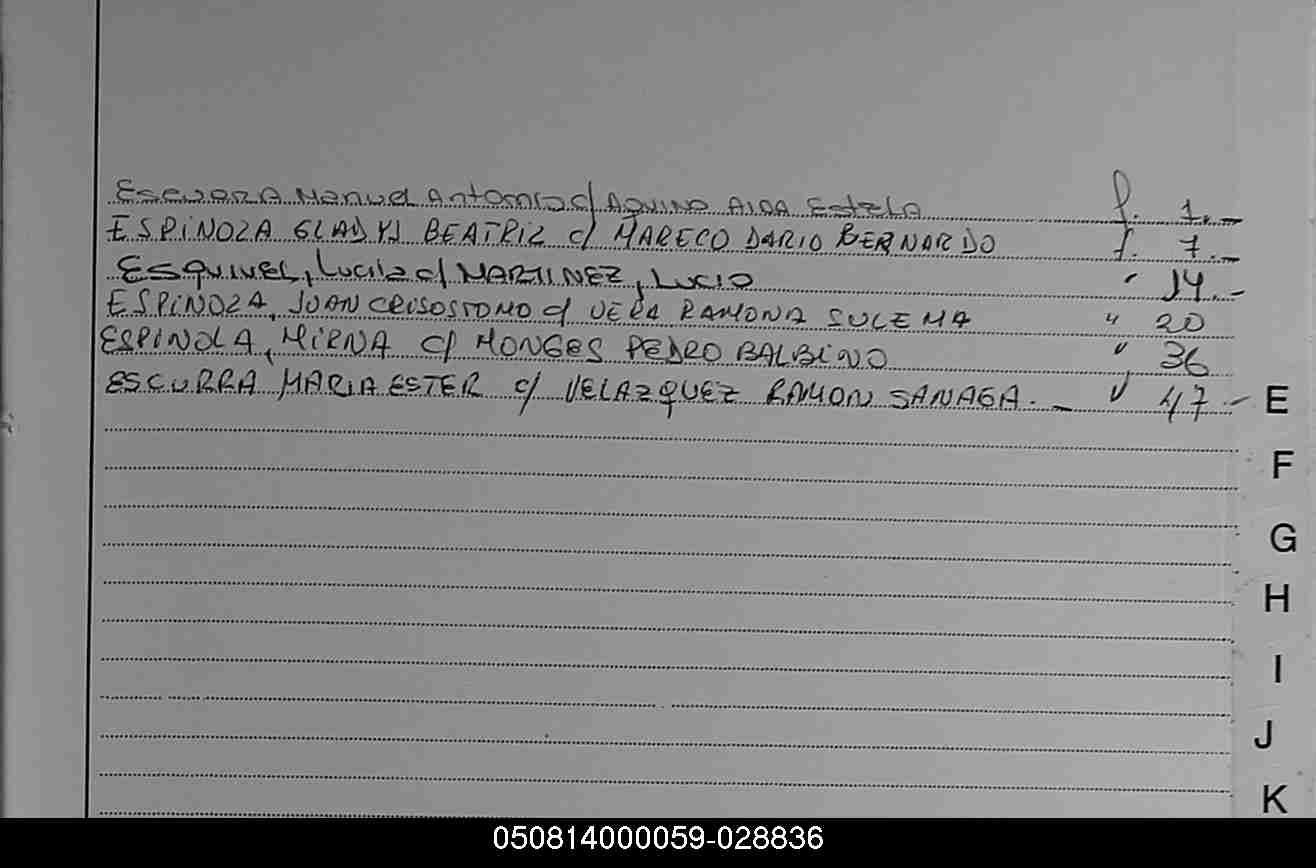 Escurra Manuel Antonio c/ Aquino Aida Estela f. 1.-
ESPINOZA GLADYS BEATRIZ c/ MARECO DARIO BERNARDO f. 7.-
Esquivel, Lucila c/ MARTINEZ, Lucio " 14.-
ESPINOZA, JUAN CRISOSTOMO c/ VERA RAMONA SULEMA " 20
ESPINOLA, MIRNA c/ MONGES PEDRO BALBINO " 36
ESCURRA MARIA ESTER c/ VELAZQUEZ RAMON SANAGA.- " 47.-
E
F
G
H
I
J
K
050814000059-028836